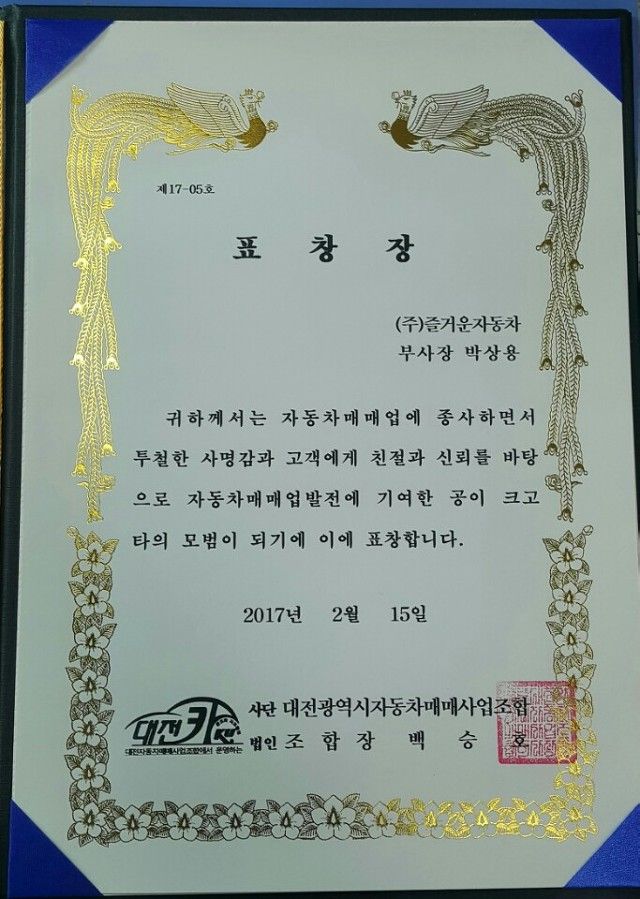 제17-05호
표 창 장
(주)즐거운자동차
부사장 박상용
귀하께서는 자동차매매업에 종사하면서
투철한 사명감과 고객에게 친절과 신뢰를 바탕
으로 자동차매매업발전에 기여한 공이 크고
타의 모범이 되기에 이에 표창합니다.
2017년 2월 15일
대전카
대전자동차매매사업조합에서 운영하는
사단 대전광역시자동차매매사업조합
법인 조합장 백승호